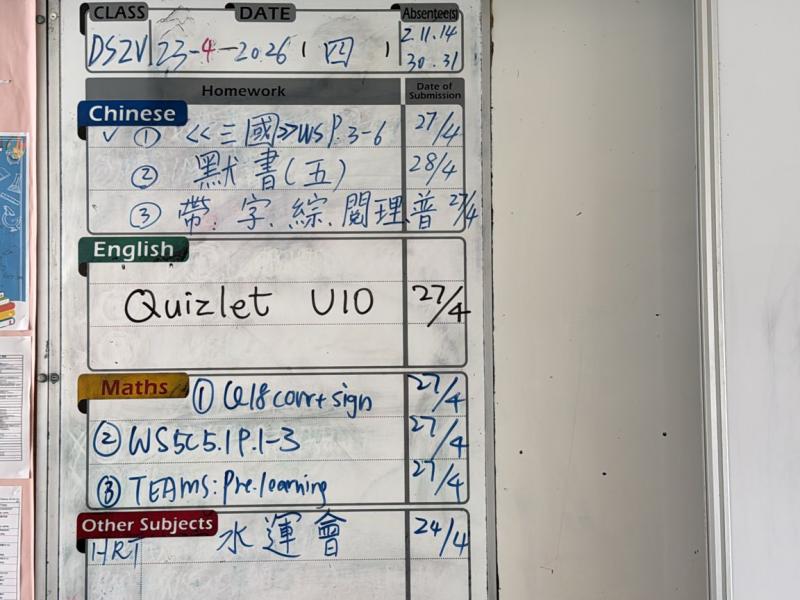 CLASS DATE Absentee(s)
DSZV 23-4-2026 (四) 2.11.14
30.31
Homework Date of Submission
Chinese
✓ ① <<三國>>WS P.3-6 27/4
② 默書(五) 28/4
③ 帶.字.綜.閱理普 27/4
English
Quizlet U10 27/4
Maths ① Q18 corr+sign 27/4
② WS5C5.1P.1-3 27/4
③ TEAMS: Pre.learning 27/4
Other Subjects
HRT 水運會 24/4